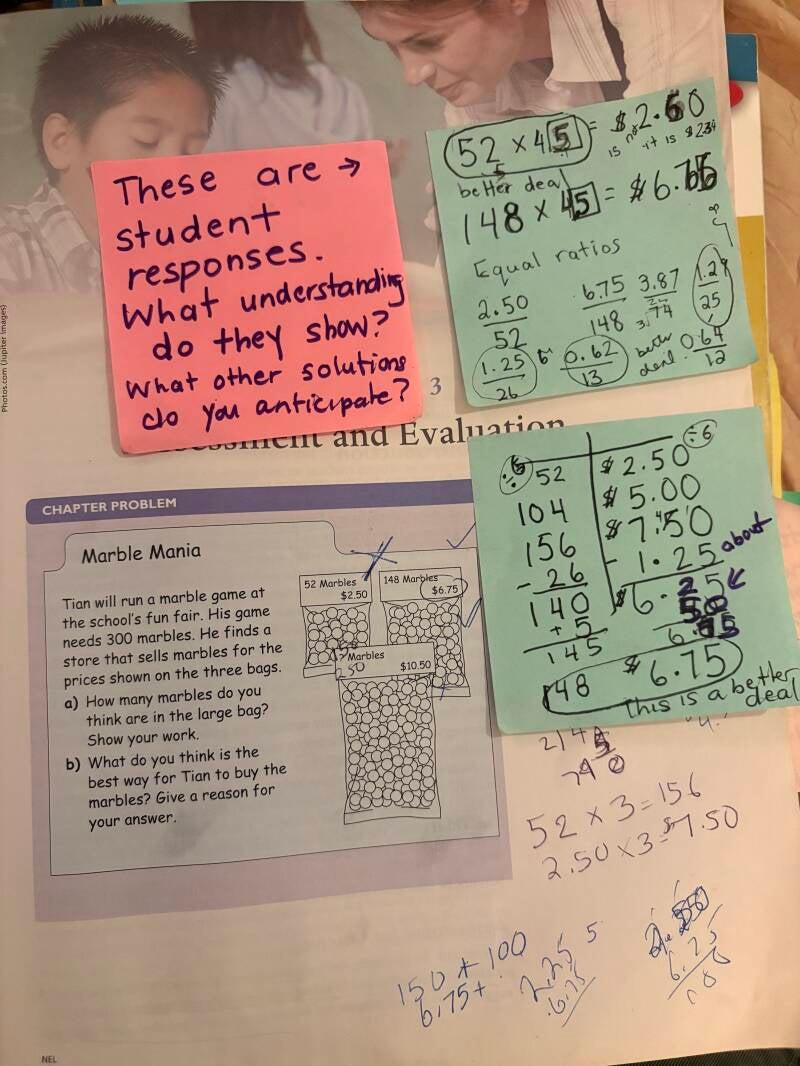 Photos.com (Jupiter Images)
These are →
student
responses.
What understanding
do they show?
What other solutions
do you anticipate?
52 × 4 5 = $2.60
is not it is $2.34
better deal
148 × 45 = $6.
Equal ratios
2.50 6.75 3.87
52 148 74
1.25 0.62 better deal 0.64
26 13 12
25
3
and Evaluation
÷6
52 $2.50
÷6
104 $5.00
156 $7.50
- 26 - 1.25 about
140 $6.25
+ 5
145
148 $6.75
This is a better
deal
CHAPTER PROBLEM
Marble Mania
Tian will run a marble game at
the school's fun fair. His game
needs 300 marbles. He finds a
store that sells marbles for the
prices shown on the three bags.
a) How many marbles do you
think are in the large bag?
Show your work.
b) What do you think is the
best way for Tian to buy the
marbles? Give a reason for
your answer.
52 Marbles
$2.50
148 Marbles
$6.75
Marbles
250
$10.50
52 × 3 = 156
2.50 × 3 = $7.50
150 + 100
6.75 +
2.25 5
6.75
6.25
NEL